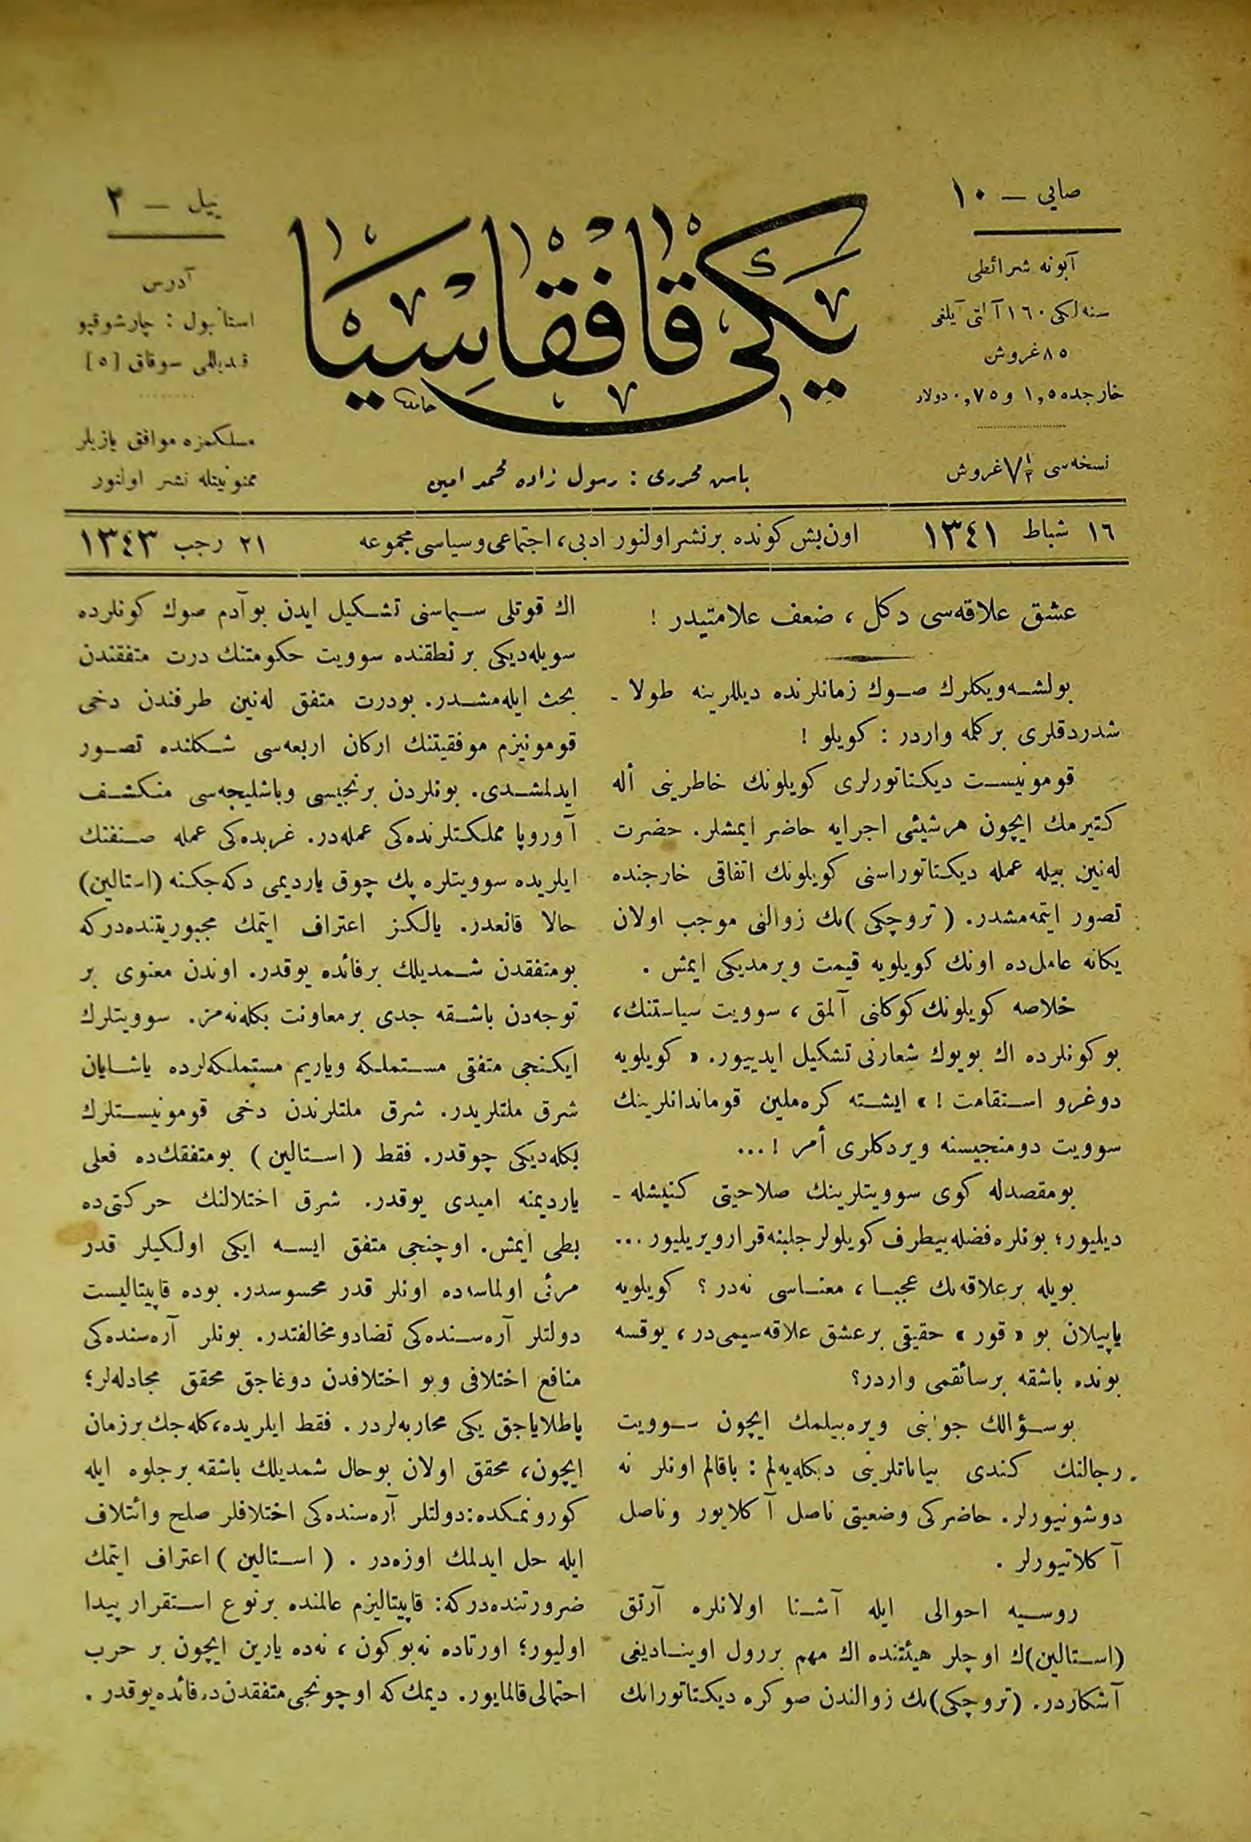 صایی — ١٠
آبونه شرائطی
سنه‌لکی ١٦٠ آلتی آیلغی
٨٥ غروش
خارجده ١,٥ و ٠,٧٥ دولار
نسخه‌سی ٧١/٢ غروش
یکی قافقاسیا
حامد
باش محرری : رسول زاده محمد امین
ییل — ٢
آدرس
استانبول : چارشوقپو
قندیللی سوقاق [٥]
مسلکمزه موافق یازیلر
ممنونیتله نشر اولنور
١٦ شباط ١٣٤١
اون بش کونده بر نشر اولنور ادبی، اجتماعی و سیاسی مجموعه
٢١ رجب ١٣٤٣
عشق علاقه‌سی دکل ، ضعف علامتیدر !
بولشه‌ویکلرك صوك زمانلرنده دیللرینه طولا ـ
شدردقلری بر کلمه واردر : کویلو !
قومونیست دیکتاتورلری کویلونك خاطرینی أله
کتیرمك ایچون هرشیئی اجرایه حاضر ایمشلر. حضرت
له‌نین بیله عمله دیکتاتوراسنی کویلونك اتفاقی خارجنده
تصور ایتمه‌مشدر. (تروچکی)نك زوالنی موجب اولان
یکانه عامل‌ده اونك کویلویه قیمت ویرمدیکی ایمش .
خلاصه کویلونك کوکلنی آلمق ، سوویت سیاستنك،
بو کونلرده اك بویوك شعارنی تشکیل ایدییور. « کویلویه
دوغرو استقامت ! » ایشته کره‌ملین قوماندانلرینك
سوویت دومنجیسنه ویردکلری أمر !...
بومقصدله کوی سوویتلرینك صلاحیتی کنیشله ـ
دیلیور؛ بونلره فضله بیطرف کویلولر جلبنه قرار ویریلیور ...
بویله بر علاقه‌نك عجبا ، معناسی نه‌در ؟ کویلویه
یاپیلان بو « قور » حقیقی بر عشق علاقه‌سیمی‌در ، یوقسه
بونده باشقه بر سائقمی واردر؟
بوسؤالك جوابنی ویره‌بیلمك ایچون سوویت
رجالنك کندی بیاناتلرینی دیکله‌یه‌لم : باقالم اونلر نه
دوشونیورلر. حاضرکی وضعیتی ناصل آکلایور وناصل
آکلاتیورلر .
روسیه احوالی ایله آشنا اولانلره آرتق
(استالین)ك اوچلر هیئتنده اك مهم بررول اوینادیغی
آشکاردر. (تروچکی)نك زوالندن صوکره دیکتاتورانك
اك قوتلی سیماسنی تشکیل ایدن بو آدم صوك کونلرده
سویله‌دیکی بر نطقنده سوویت حکومتنك درت متفقندن
بحث ایله‌مشدر. بودرت متفق له‌نین طرفندن دخی
قومونیزم موفقیتنك ارکان اربعه‌سی شکلنده تصور
ایدلمشدی. بونلردن برنجیسی وباشلیجه‌سی منکشف
آوروپا مملکتلرنده‌کی عمله‌در. غربده‌کی عمله صنفنك
ایلریده سوویتلره پك چوق یاردیمی دکه‌جکنه (استالین)
حالا قانعدر. یالکز اعتراف ایتمك مجبوریتنده‌درکه
بومتفقدن شمدیلك بر فائده یوقدر. اوندن معنوی بر
توجه‌دن باشقه جدی بر معاونت بکله‌نه‌مز. سوویتلرك
ایکنجی متفقی مستملکه ویاریم مستملکه‌لرده یاشایان
شرق ملتلریدر. شرق ملتلرندن دخی قومونیستلرك
بکله‌دیکی چوقدر. فقط (استالین) بومتفقك‌ده فعلی
یاردیمنه امیدی یوقدر. شرق اختلالنك حرکتی‌ده
بطی ایمش. اوچنجی متفق ایسه ایکی اولکیلر قدر
مرئی اولماسه‌ده اونلر قدر محسوسدر. بوده قاپیتالیست
دولتلر آره‌سنده‌کی تضاد و مخالفتدر. بونلر آره‌سنده‌کی
منافع اختلافی و بو اختلافدن دوغاجق محقق مجادله‌لر؛
پاطلایاجق یکی محاربه‌لردر . فقط ایلریده، کله‌جك بر زمان
ایچون، محقق اولان بو حال شمدیلك باشقه بر جلوه ایله
کورونمکده: دولتلر آره‌سنده‌کی اختلافلر صلح وائتلاف
ایله حل ایدلمك اوزه‌در . (استالین) اعتراف ایتمك
ضرورتنده‌درکه: قاپیتالیزم عالمنده بر نوع استقرار پیدا
اولیور؛ اورتاده نه بوکون ، نه‌ده یارین ایچون بر حرب
احتمالی قالمایور. دیمك که اوچونجی متفقدن‌ده فائده یوقدر .